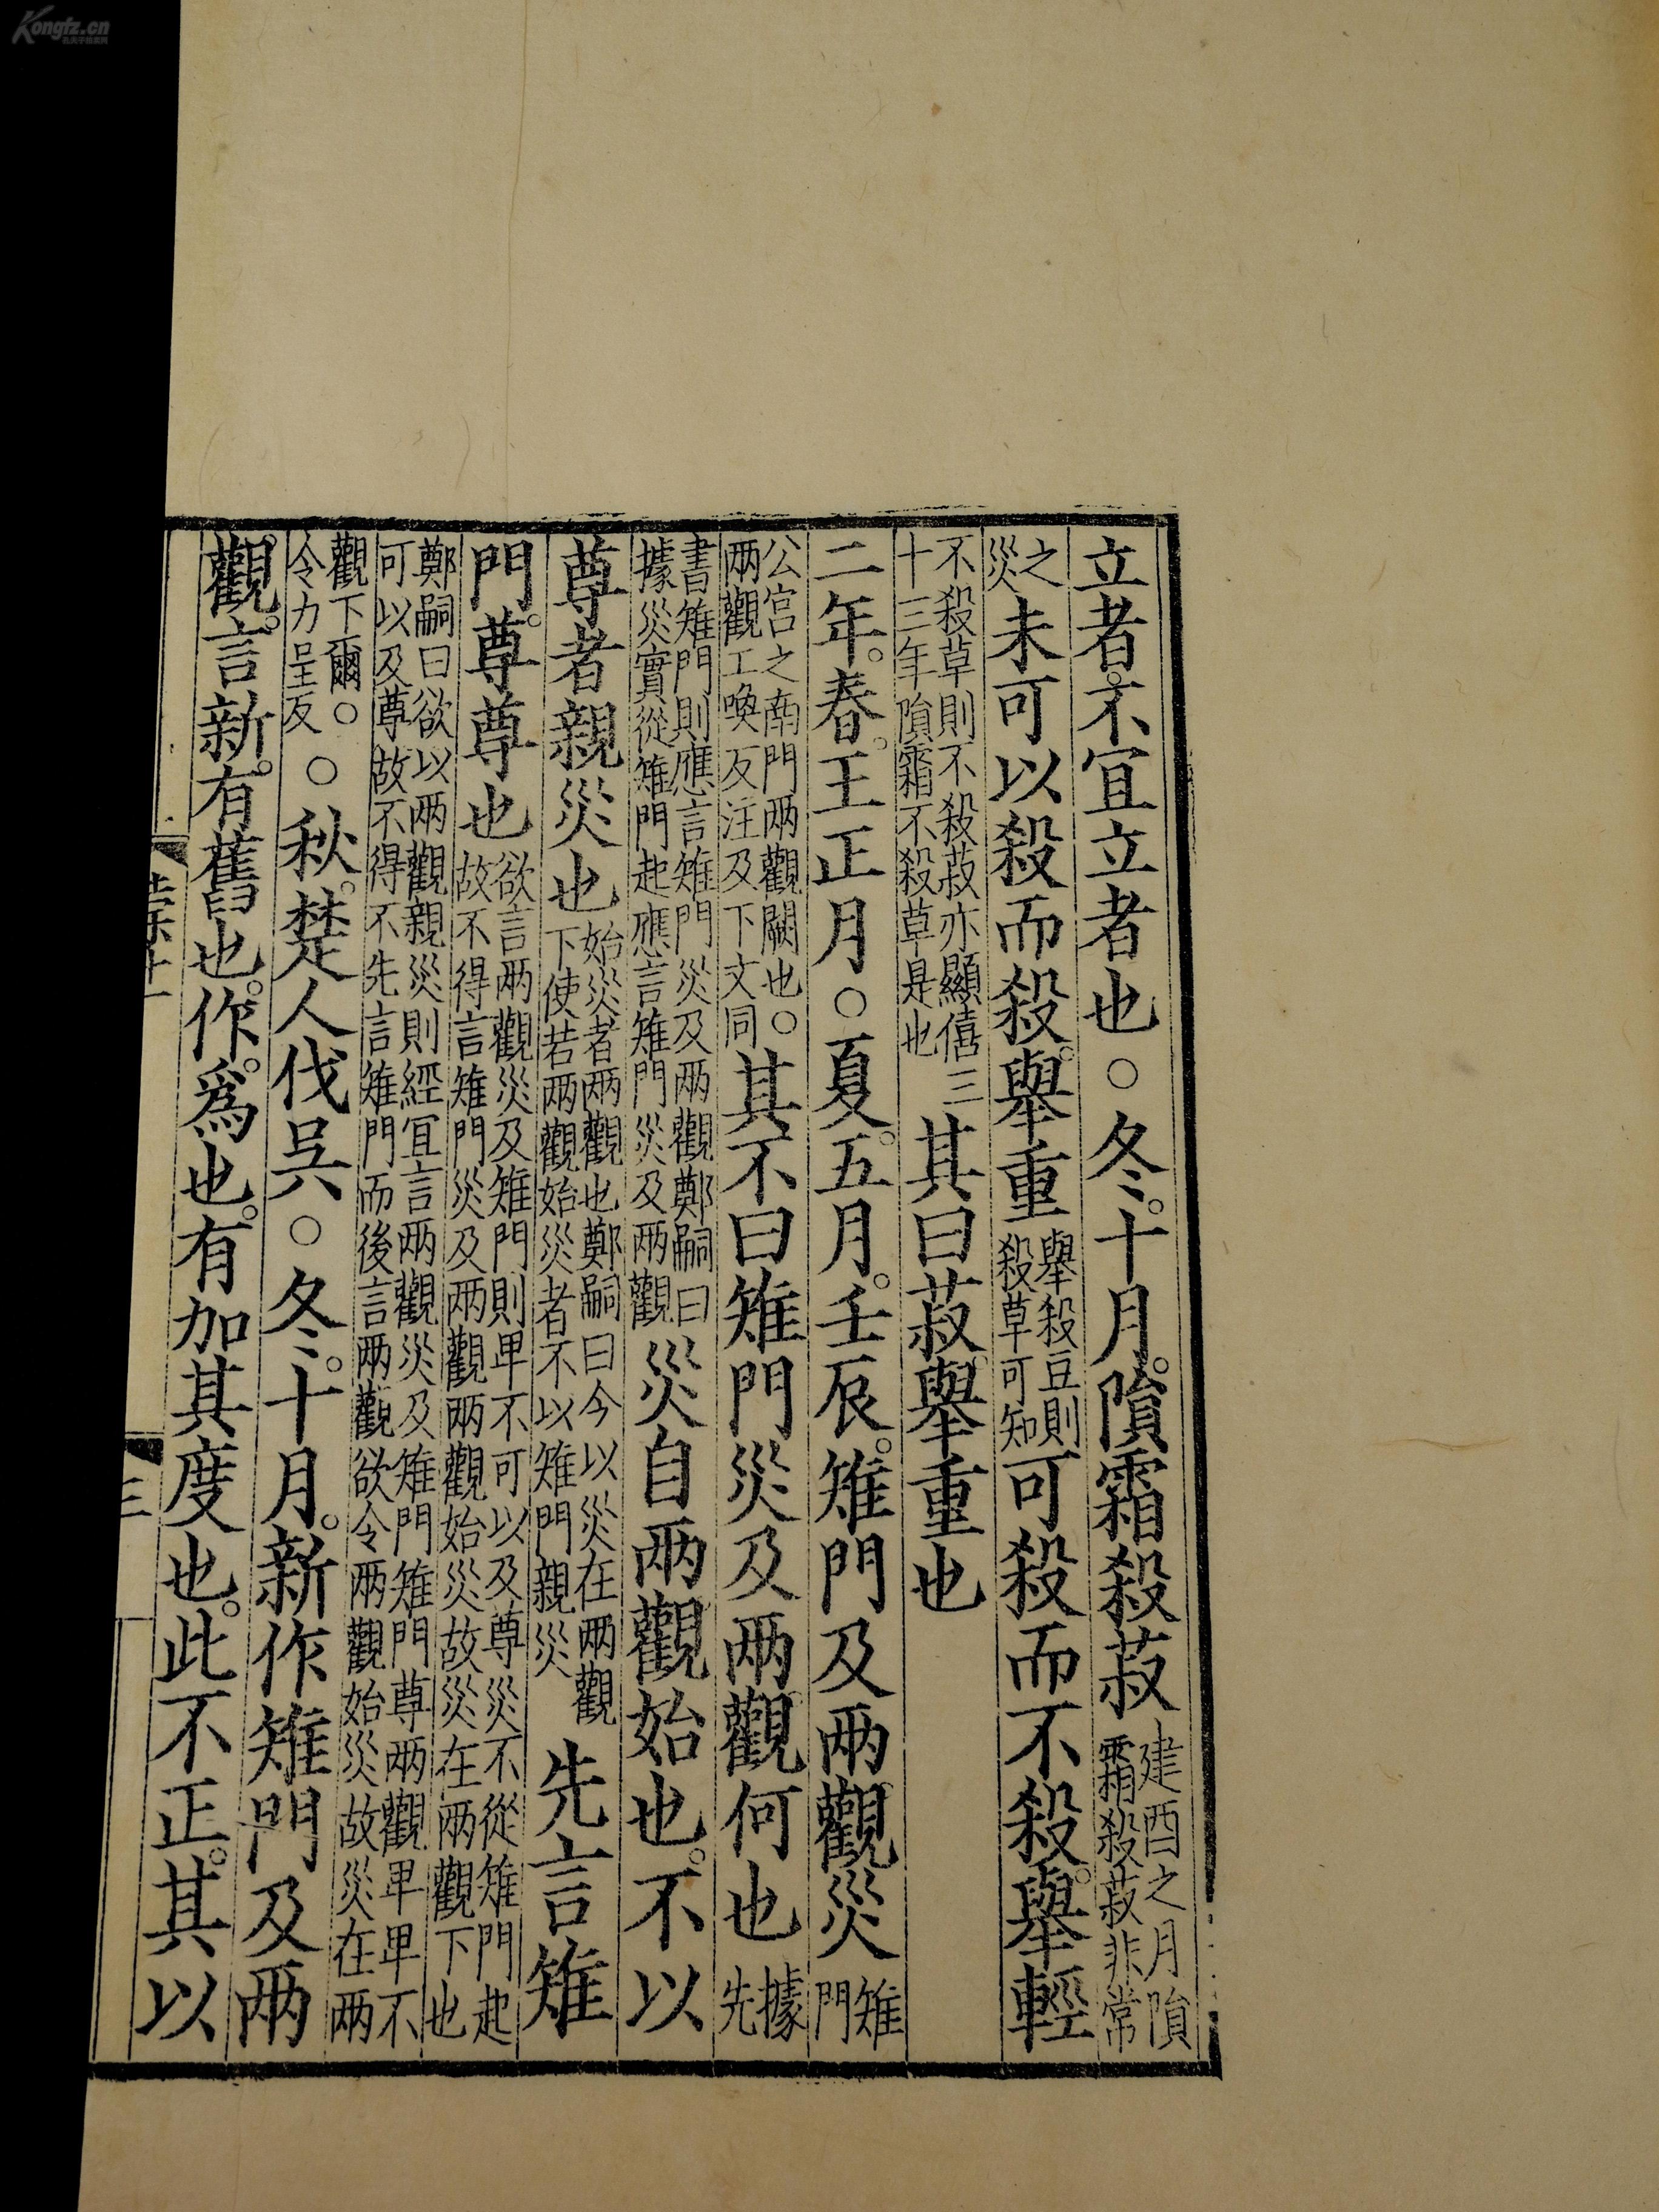 立者。不宜立者也。○冬。十月。隕霜殺菽建酉之月隕霜殺菽非常
之災未可以殺而殺。舉重舉殺豆則殺草可知可殺而不殺。舉輕
不殺草則不殺菽亦顯僖三十三年隕霜不殺草是也其曰菽。舉重也
二年。春。王正月。○夏。五月。壬辰。雉門及兩觀災雉門
公宮之南門兩觀闕也。○兩觀工喚反注及下文同其不曰雉門災及兩觀何也據先
書雉門則應言雉門災及兩觀鄭嗣曰據災實從雉門起應言雉門災及兩觀災自兩觀始也。不以
尊者親災也始災者兩觀也鄭嗣曰今以災在兩觀下使若兩觀始災者不以雉門親災先言雉
門。尊尊也欲言兩觀災及雉門則卑不可以及尊災不從雉門起故不得言雉門災及兩觀兩觀始災故災在兩觀下也
鄭嗣曰欲以兩觀親災則經宜言兩觀災及雉門雉門尊兩觀卑卑不可以及尊故不得不先言雉門而後言兩觀欲令兩觀始災故災在兩
觀下爾。○令力呈反○秋。楚人伐吳○冬。十月。新作雉門及兩
觀。言新。有舊也。作。為也。有加其度也。此不正。其以
三
Kongfz.cn